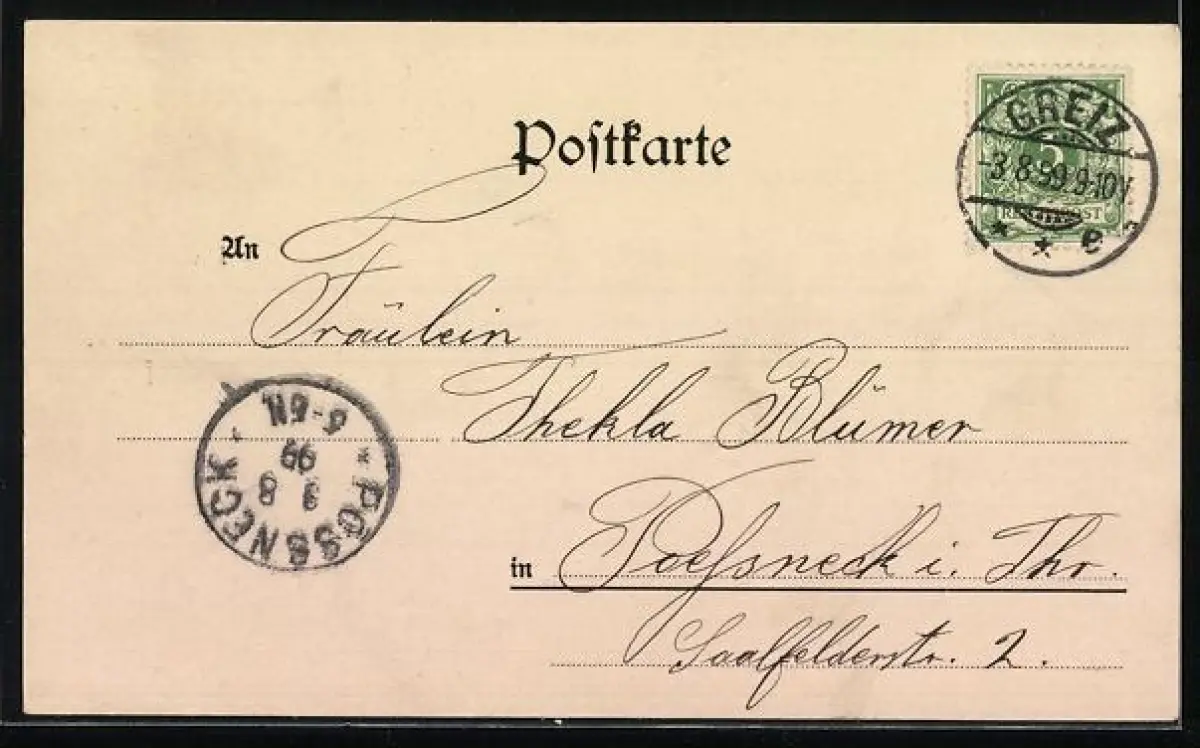 Postkarte
GREIZ
-3.8.99.9-10V.
* * e
5
REICHSPOST
An
Fräulein
Thekla Blümer
in Poessneck i. Thr.
Saalfelderstr. 2.
* PÖSSNECK *
3 8
99
5-6N.